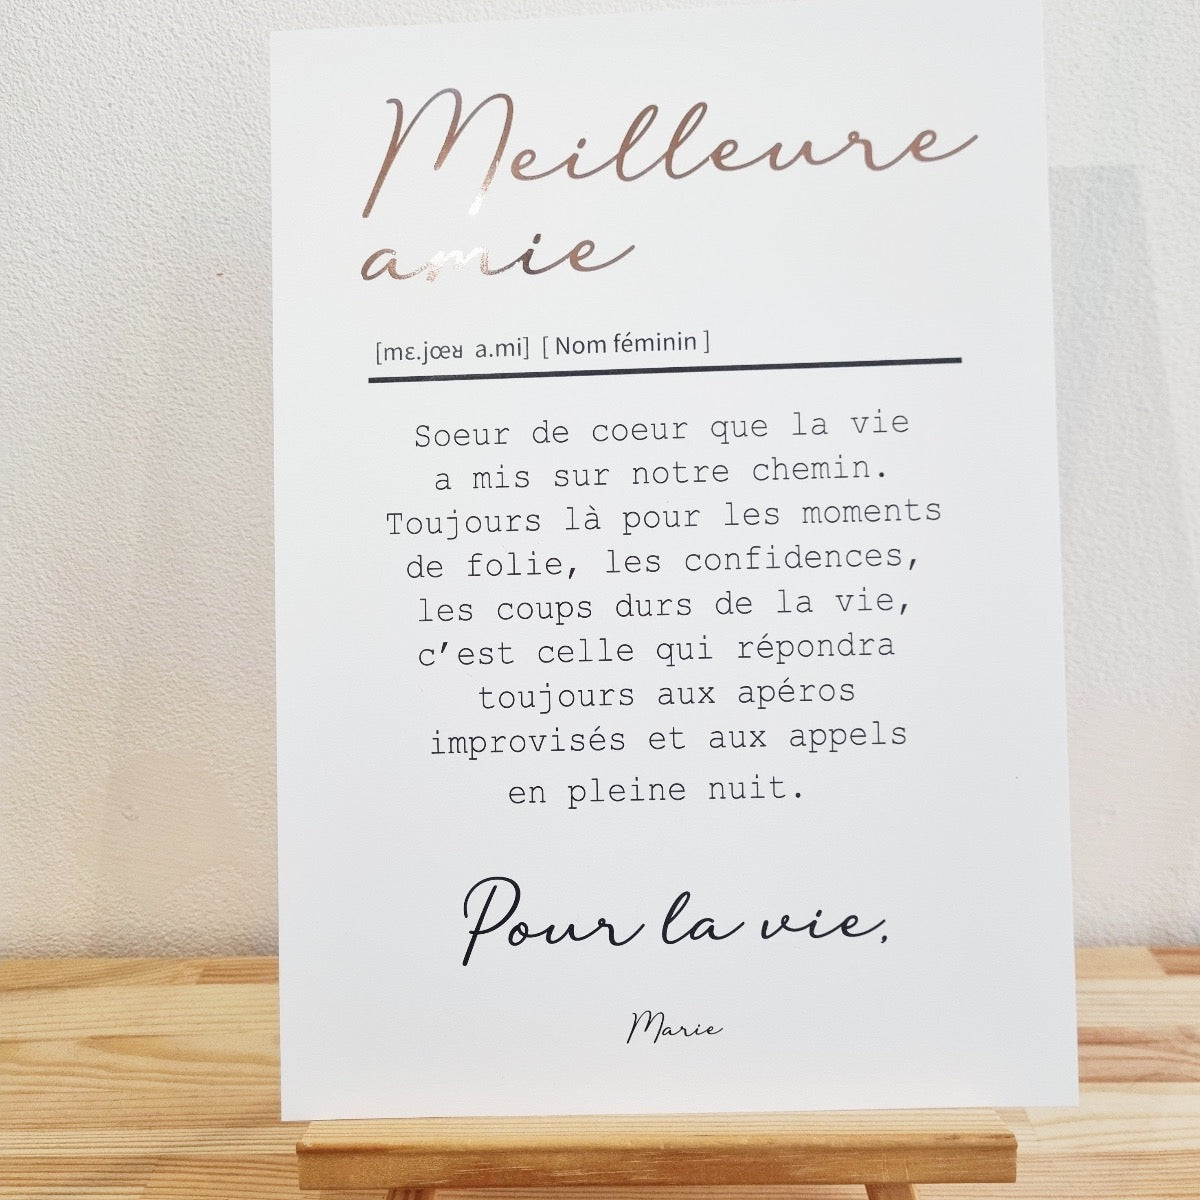 Meilleure
amie
[mɛ.jœʁ a.mi] [ Nom féminin ]
Soeur de coeur que la vie
a mis sur notre chemin.
Toujours là pour les moments
de folie, les confidences,
les coups durs de la vie,
c’est celle qui répondra
toujours aux apéros
improvisés et aux appels
en pleine nuit.
Pour la vie.
Marie